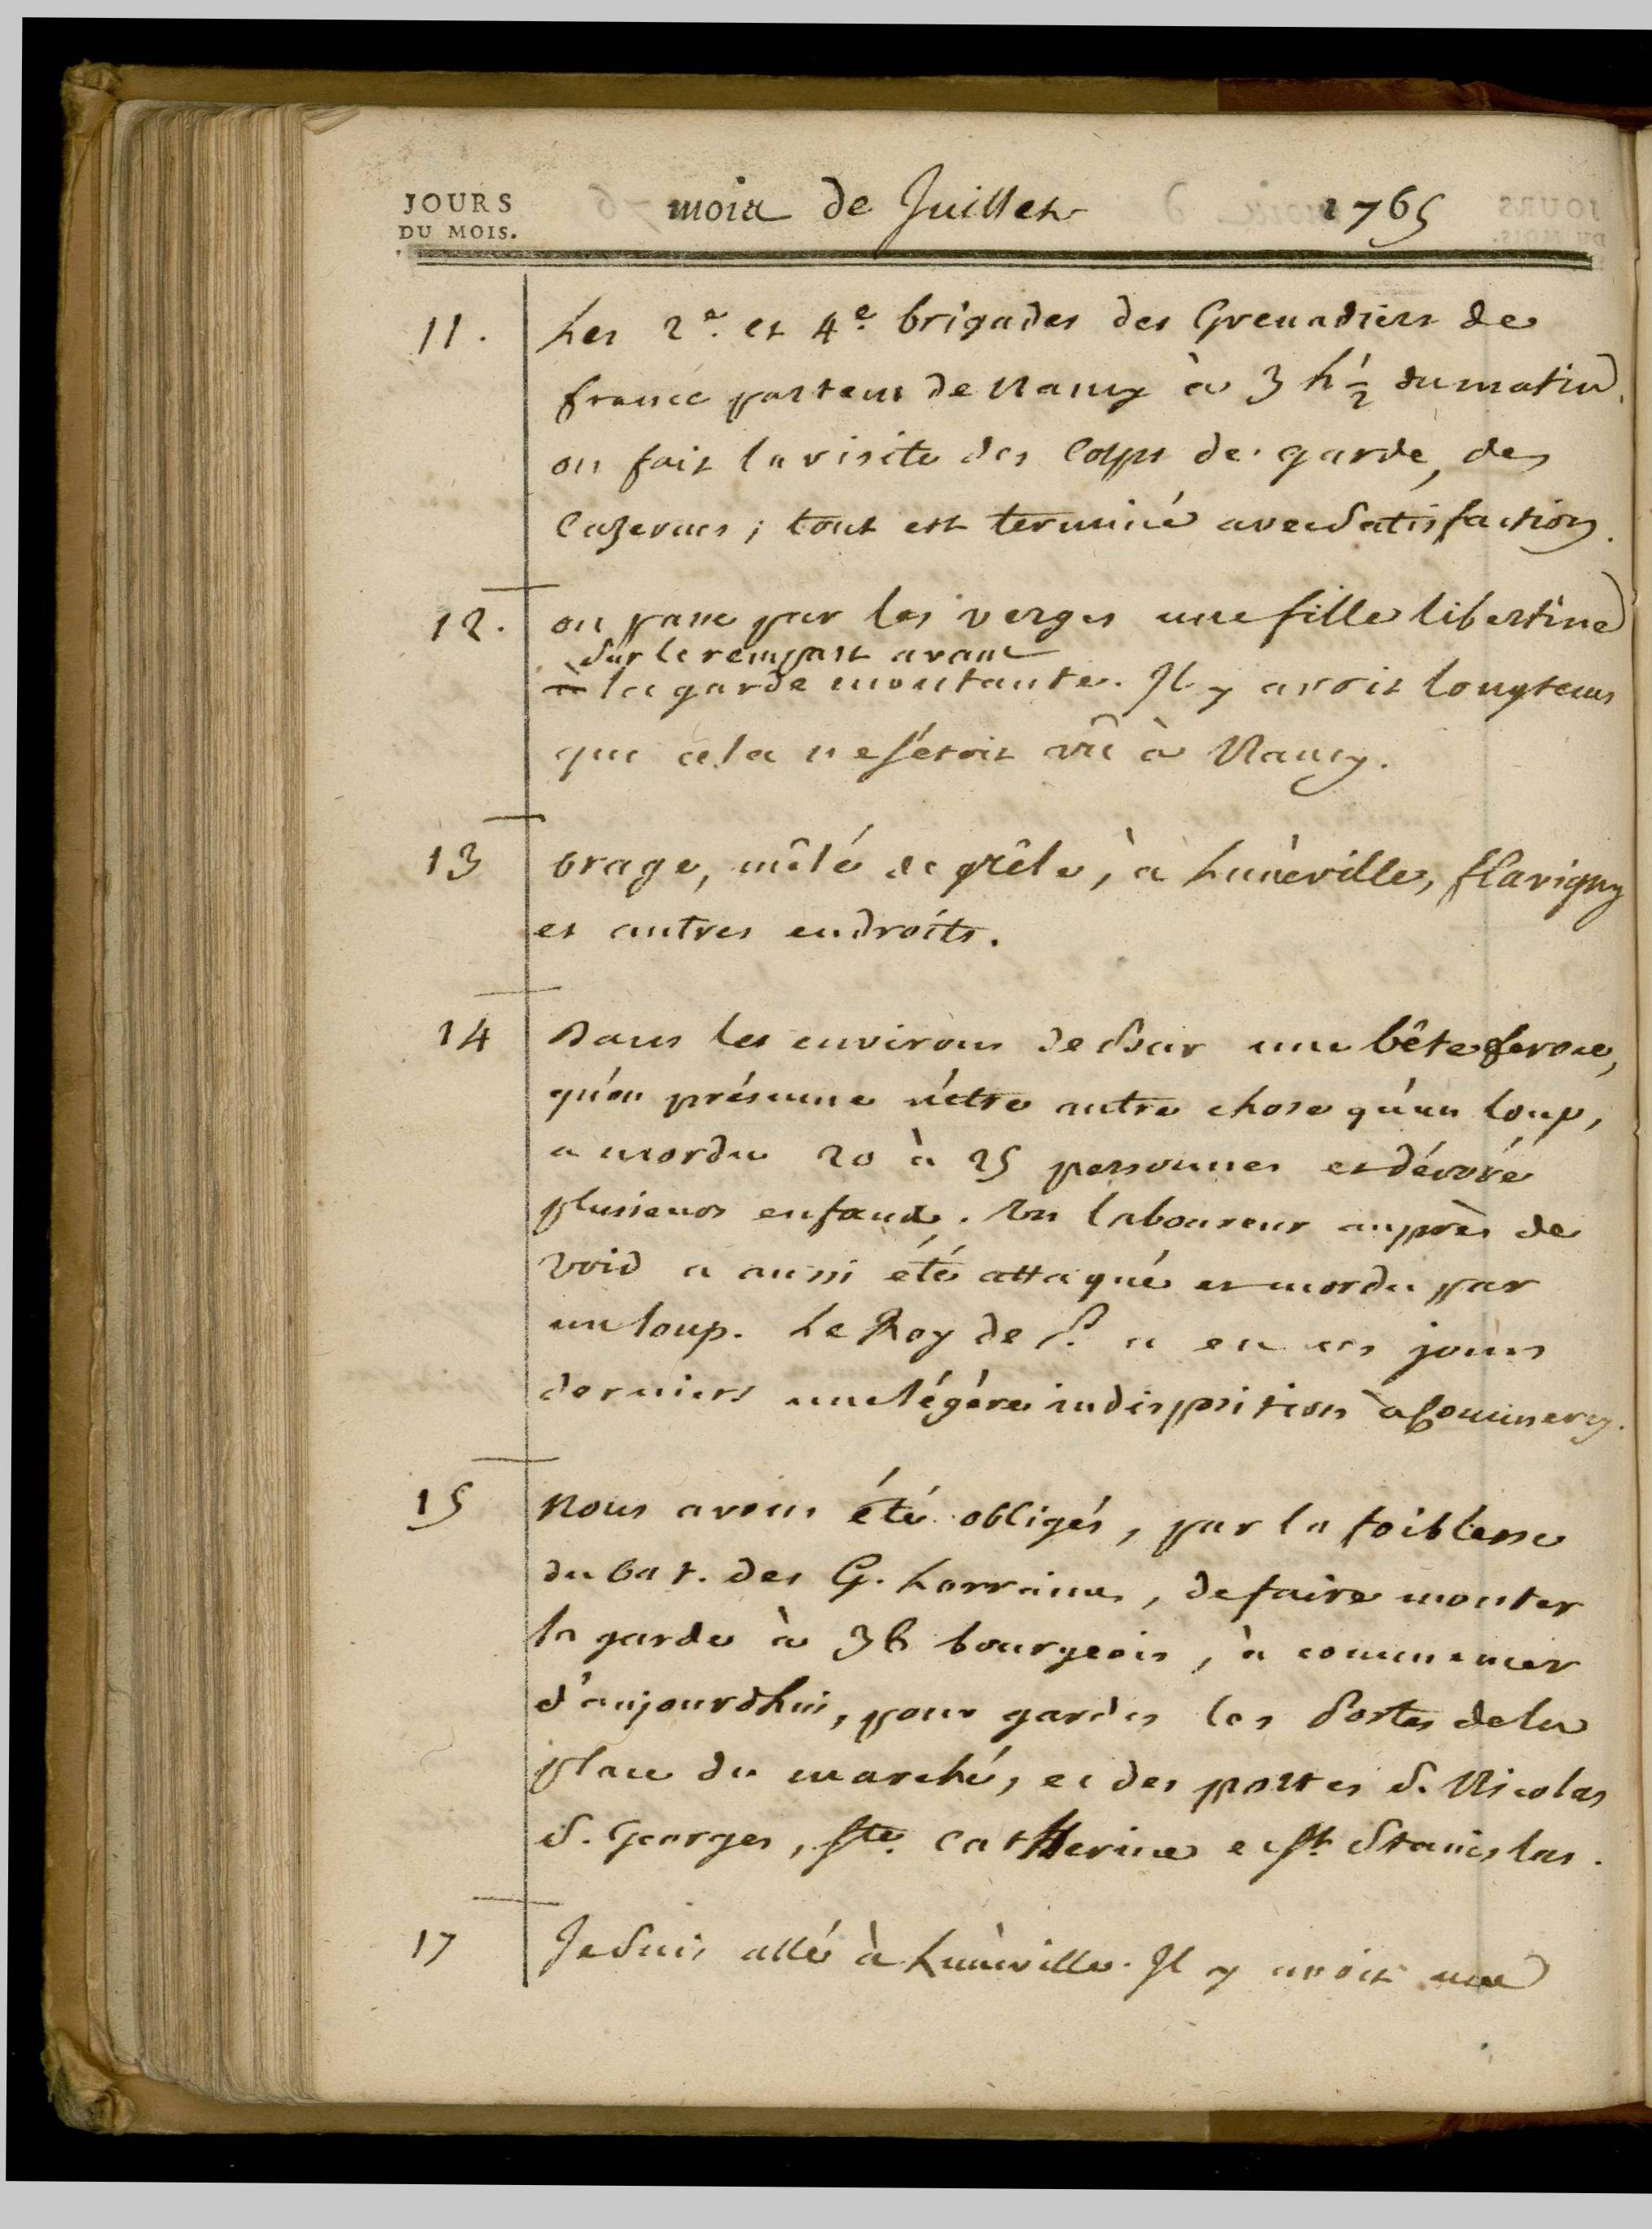 JOURS
DU MOIS.
mois de Juillet 1765
11. Les 2e. et 4e. brigades des Grenadiers de
france partent de Nancy à 3 h 1/2 du matin.
on fait la visite des Corps de garde, des
Cazernes; tout est terminé avec Satisfaction.
12. on passe par les verges une fille libertine
Sur le rempart avant
la garde montante. Il y avoit longtems
que cela ne s'étoit vû à Nancy.
13 Orage, mêlé de grêle, à Lunéville, flavigny
et autres endroits.
14 Dans les environs de Bar une bête feroce,
qu'on présume n'être autre chose qu'un loup,
a mordu 20 à 25 personnes et dévoré
plusieurs enfants. Un laboureur auprès de
Void a aussi été attaqué et mordu par
un loup. Le Roy de P. a eu ces jours
derniers une légère indisposition à Commercy.
15 Nous avons été obligés, par la foiblesse
du bat. des G. Lorraines, de faire monter
la garde à 36 bourgeois, à commencer
d'aujourdhui, pour garder les Postes de la
place du marché, et des portes S. Nicolas
S. Georges, Ste. Catherine et St. Stanislas.
17 Je Suis allé à Lunéville. Il y avoit une